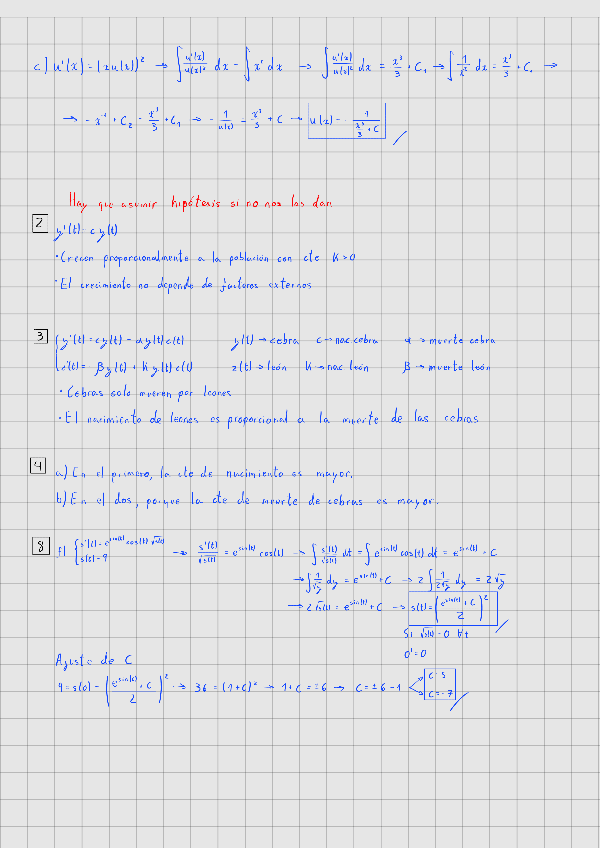 c) u'(x) = (x u(x))² → ∫ u'(x)/u(x)² dx = ∫ x² dx → ∫ u'(x)/u(x)² dx = x³/3 + C₁ → ∫ 1/x² dx = x³/3 + C₁ →
→ - x⁻¹ + C₂ = x³/3 + C₁ → - 1/u(x) = x³/3 + C → u(x) = - 1/(x³/3 + C)
Hay que asumir hipótesis si no nos las dan
2
y'(t) = c y(t)
· Crecen proporcionalmente a la población con cte K > 0
· El crecimiento no depende de factores externos
3 { y'(t) = c y(t) - α y(t) z(t) y(t) → cebra c → nac. cebra α → muerte cebra
z'(t) = β z(t) + K y(t) z(t) z(t) → león K → nac león β → muerte león
· Cebras solo mueren por leones
· El nacimiento de leones es proporcional a la muerte de las cebras
4 a) En el primero, la cte de nacimiento es mayor.
b) En el dos, porque la cte de muerte de cebras es mayor.
8 f) { s'(t) = e^sin(t) cos(t) √s(t) → s'(t)/√s(t) = e^sin(t) cos(t) → ∫ s'(t)/√s(t) dt = ∫ e^sin(t) cos(t) dt = e^sin(t) + C
s(0) = 9
→ ∫ 1/√y dy = e^sin(t) + C → 2 ∫ 1/(2√y) dy = 2√y
→ 2 √s(t) = e^sin(t) + C → s(t) = ((e^sin(t) + C)/2)²
Si √s(t) = 0 ∀t
0' = 0
Ajuste de C
9 = s(0) = ((e^sin(t) + C)/2)² → 36 = (1+C)² → 1 + C = ±6 → C = ±6 - 1
C = 5
C = -7